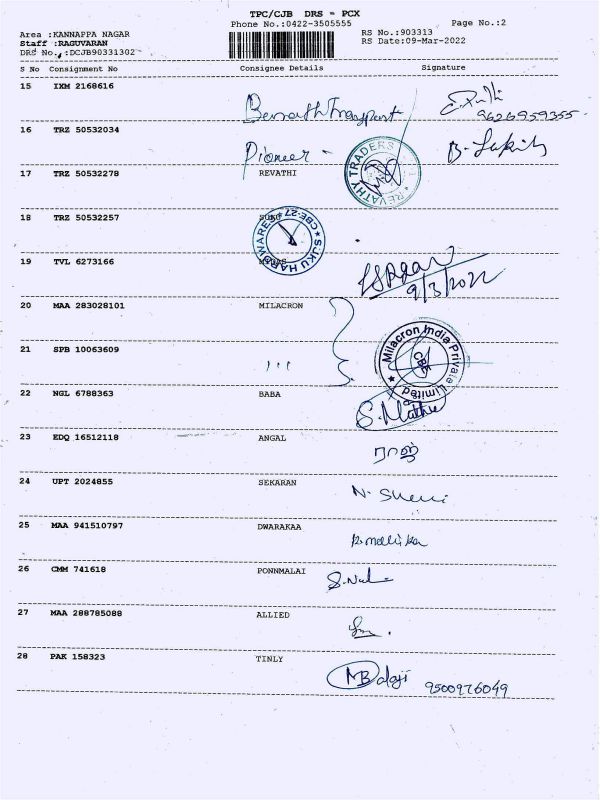 TPC/CJB DRS - PCX
Phone No.:0422-3505555
Page No.:2
Area :KANNAPPA NAGAR
RS No.:903313
Staff :RAGUVARAN
RS Date:09-Mar-2022
DRS No.:DCJB90331302
S No Consignment No Consignee Details Signature
15 IXM 2168616
9626959355
16 TRZ 50532034 Pioneer
17 TRZ 50532278 REVATHI
REVATHY TRADERS
18 TRZ 50532257
SUKU HARDWARES CBE-27
19 TVL 6273166
9/3/2022
20 MAA 283028101 MILACRON
Milacron India Private Limited
CBE
21 SPB 10063609
22 NGL 6788363 BABA
23 EDQ 16512118 ANGAL
ராஜ்
24 UPT 2024855 SEKARAN
25 MAA 941510797 DWARAKAA
26 CMM 741618 PONNMALAI
27 MAA 288785088 ALLIED
28 PAK 158323 TINLY
MBalaji 9500976049